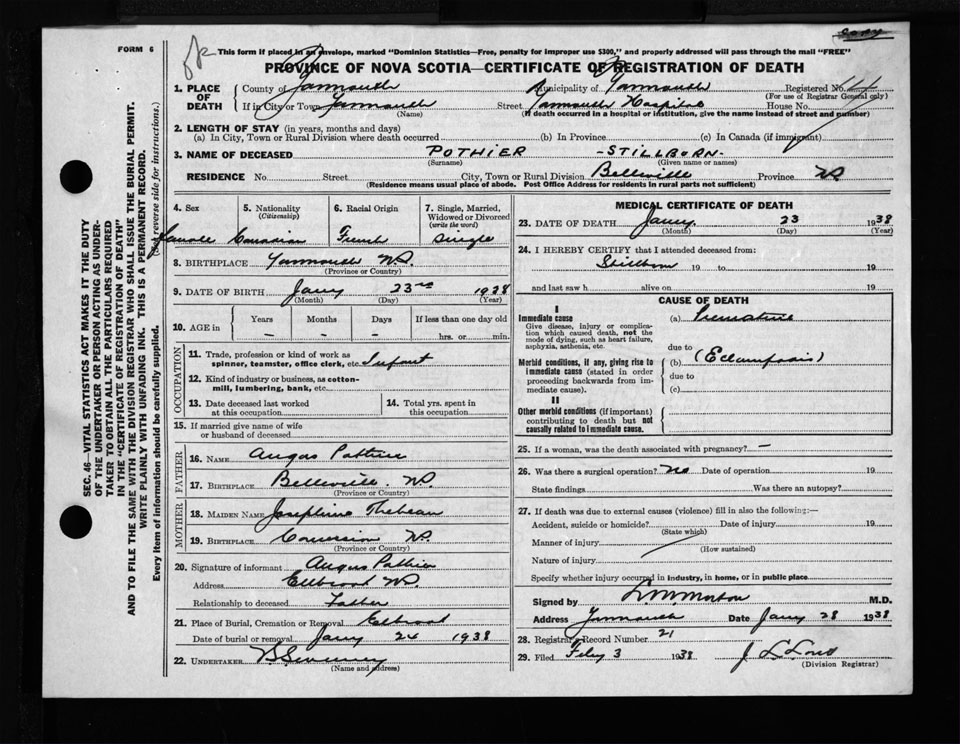 Copy
FORM 6
This form if placed in an envelope, marked "Dominion Statistics—Free, penalty for improper use $300," and properly addressed will pass through the mail "FREE"
PROVINCE OF NOVA SCOTIA—CERTIFICATE OF REGISTRATION OF DEATH
1. PLACE OF DEATH County of Yarmouth Municipality of Yarmouth Registered No.
(For use of Registrar General only)
If in City or Town Yarmouth Street Yarmouth Hospital House No.
(Name) (If death occurred in a hospital or institution, give the name instead of street and number)
2. LENGTH OF STAY (in years, months and days)
(a) In City, Town or Rural Division where death occurred (b) In Province (c) In Canada (if immigrant)
3. NAME OF DECEASED POTHIER -STILLBORN-
(Surname) (Given name or names)
RESIDENCE No. Street City, Town or Rural Division Belleville Province NS
(Residence means usual place of abode. Post Office Address for residents in rural parts not sufficient)
4. Sex 5. Nationality (Citizenship) 6. Racial Origin 7. Single, Married, Widowed or Divorced (write the word)
Female Canadian French Single
8. BIRTHPLACE Yarmouth NS.
(Province or Country)
9. DATE OF BIRTH Jany 23rd 1938
(Month) (Day) (Year)
10. AGE in Years Months Days If less than one day old
— — — hrs. or min.
OCCUPATION
11. Trade, profession or kind of work as spinner, teamster, office clerk, etc. Infant
12. Kind of industry or business, as cotton-mill, lumbering, bank, etc.
13. Date deceased last worked at this occupation 14. Total yrs. spent in this occupation
15. If married give name of wife or husband of deceased
FATHER
16. NAME Angus Pothier
17. BIRTHPLACE Belleville. NS.
(Province or Country)
MOTHER
18. MAIDEN NAME Josephine Thebeau
19. BIRTHPLACE Concession NS.
(Province or Country)
20. Signature of informant Angus Pothier
Address Eelbrook NS.
Relationship to deceased Father
21. Place of Burial, Cremation or Removal Eelbrook
Date of burial or removal Jany 24 1938
22. UNDERTAKER B Sweeney
(Name and address)
MEDICAL CERTIFICATE OF DEATH
23. DATE OF DEATH Jany 23 1938
(Month) (Day) (Year)
24. I HEREBY CERTIFY that I attended deceased from:
Stillborn 19 to 19
and last saw h alive on 19
CAUSE OF DEATH
I
Immediate cause (a) Premature
Give disease, injury or complication which caused death, not the mode of dying, such as heart failure, asphyxia, asthenia, etc.
due to
Morbid conditions, if any, giving rise to immediate cause (stated in order proceeding backwards from immediate cause). (b) (Eclampsia)
due to
(c)
II
Other morbid conditions (if important) contributing to death but not causally related to immediate cause.
25. If a woman, was the death associated with pregnancy? —
26. Was there a surgical operation? No Date of operation 19
State findings Was there an autopsy?
27. If death was due to external causes (violence) fill in also the following:—
Accident, suicide or homicide? Date of injury 19
(State which)
Manner of injury
(How sustained)
Nature of injury
Specify whether injury occurred in industry, in home, or in public place
Signed by L.M. Morton M.D.
Address Yarmouth Date Jany 28 1938
28. Registrar's Record Number 21
29. Filed Feby 3 1938 J L Lord
(Division Registrar)
SEC. 46—VITAL STATISTICS ACT MAKES IT THE DUTY
OF THE UNDERTAKER OR PERSON ACTING AS UNDER-
TAKER TO OBTAIN ALL THE PARTICULARS REQUIRED
IN THE "CERTIFICATE OF REGISTRATION OF DEATH"
AND TO FILE THE SAME WITH THE DIVISION REGISTRAR WHO SHALL ISSUE THE BURIAL PERMIT.
WRITE PLAINLY WITH UNFADING INK. THIS IS A PERMANENT RECORD.
Every item of information should be carefully supplied. (See reverse side for instructions.)